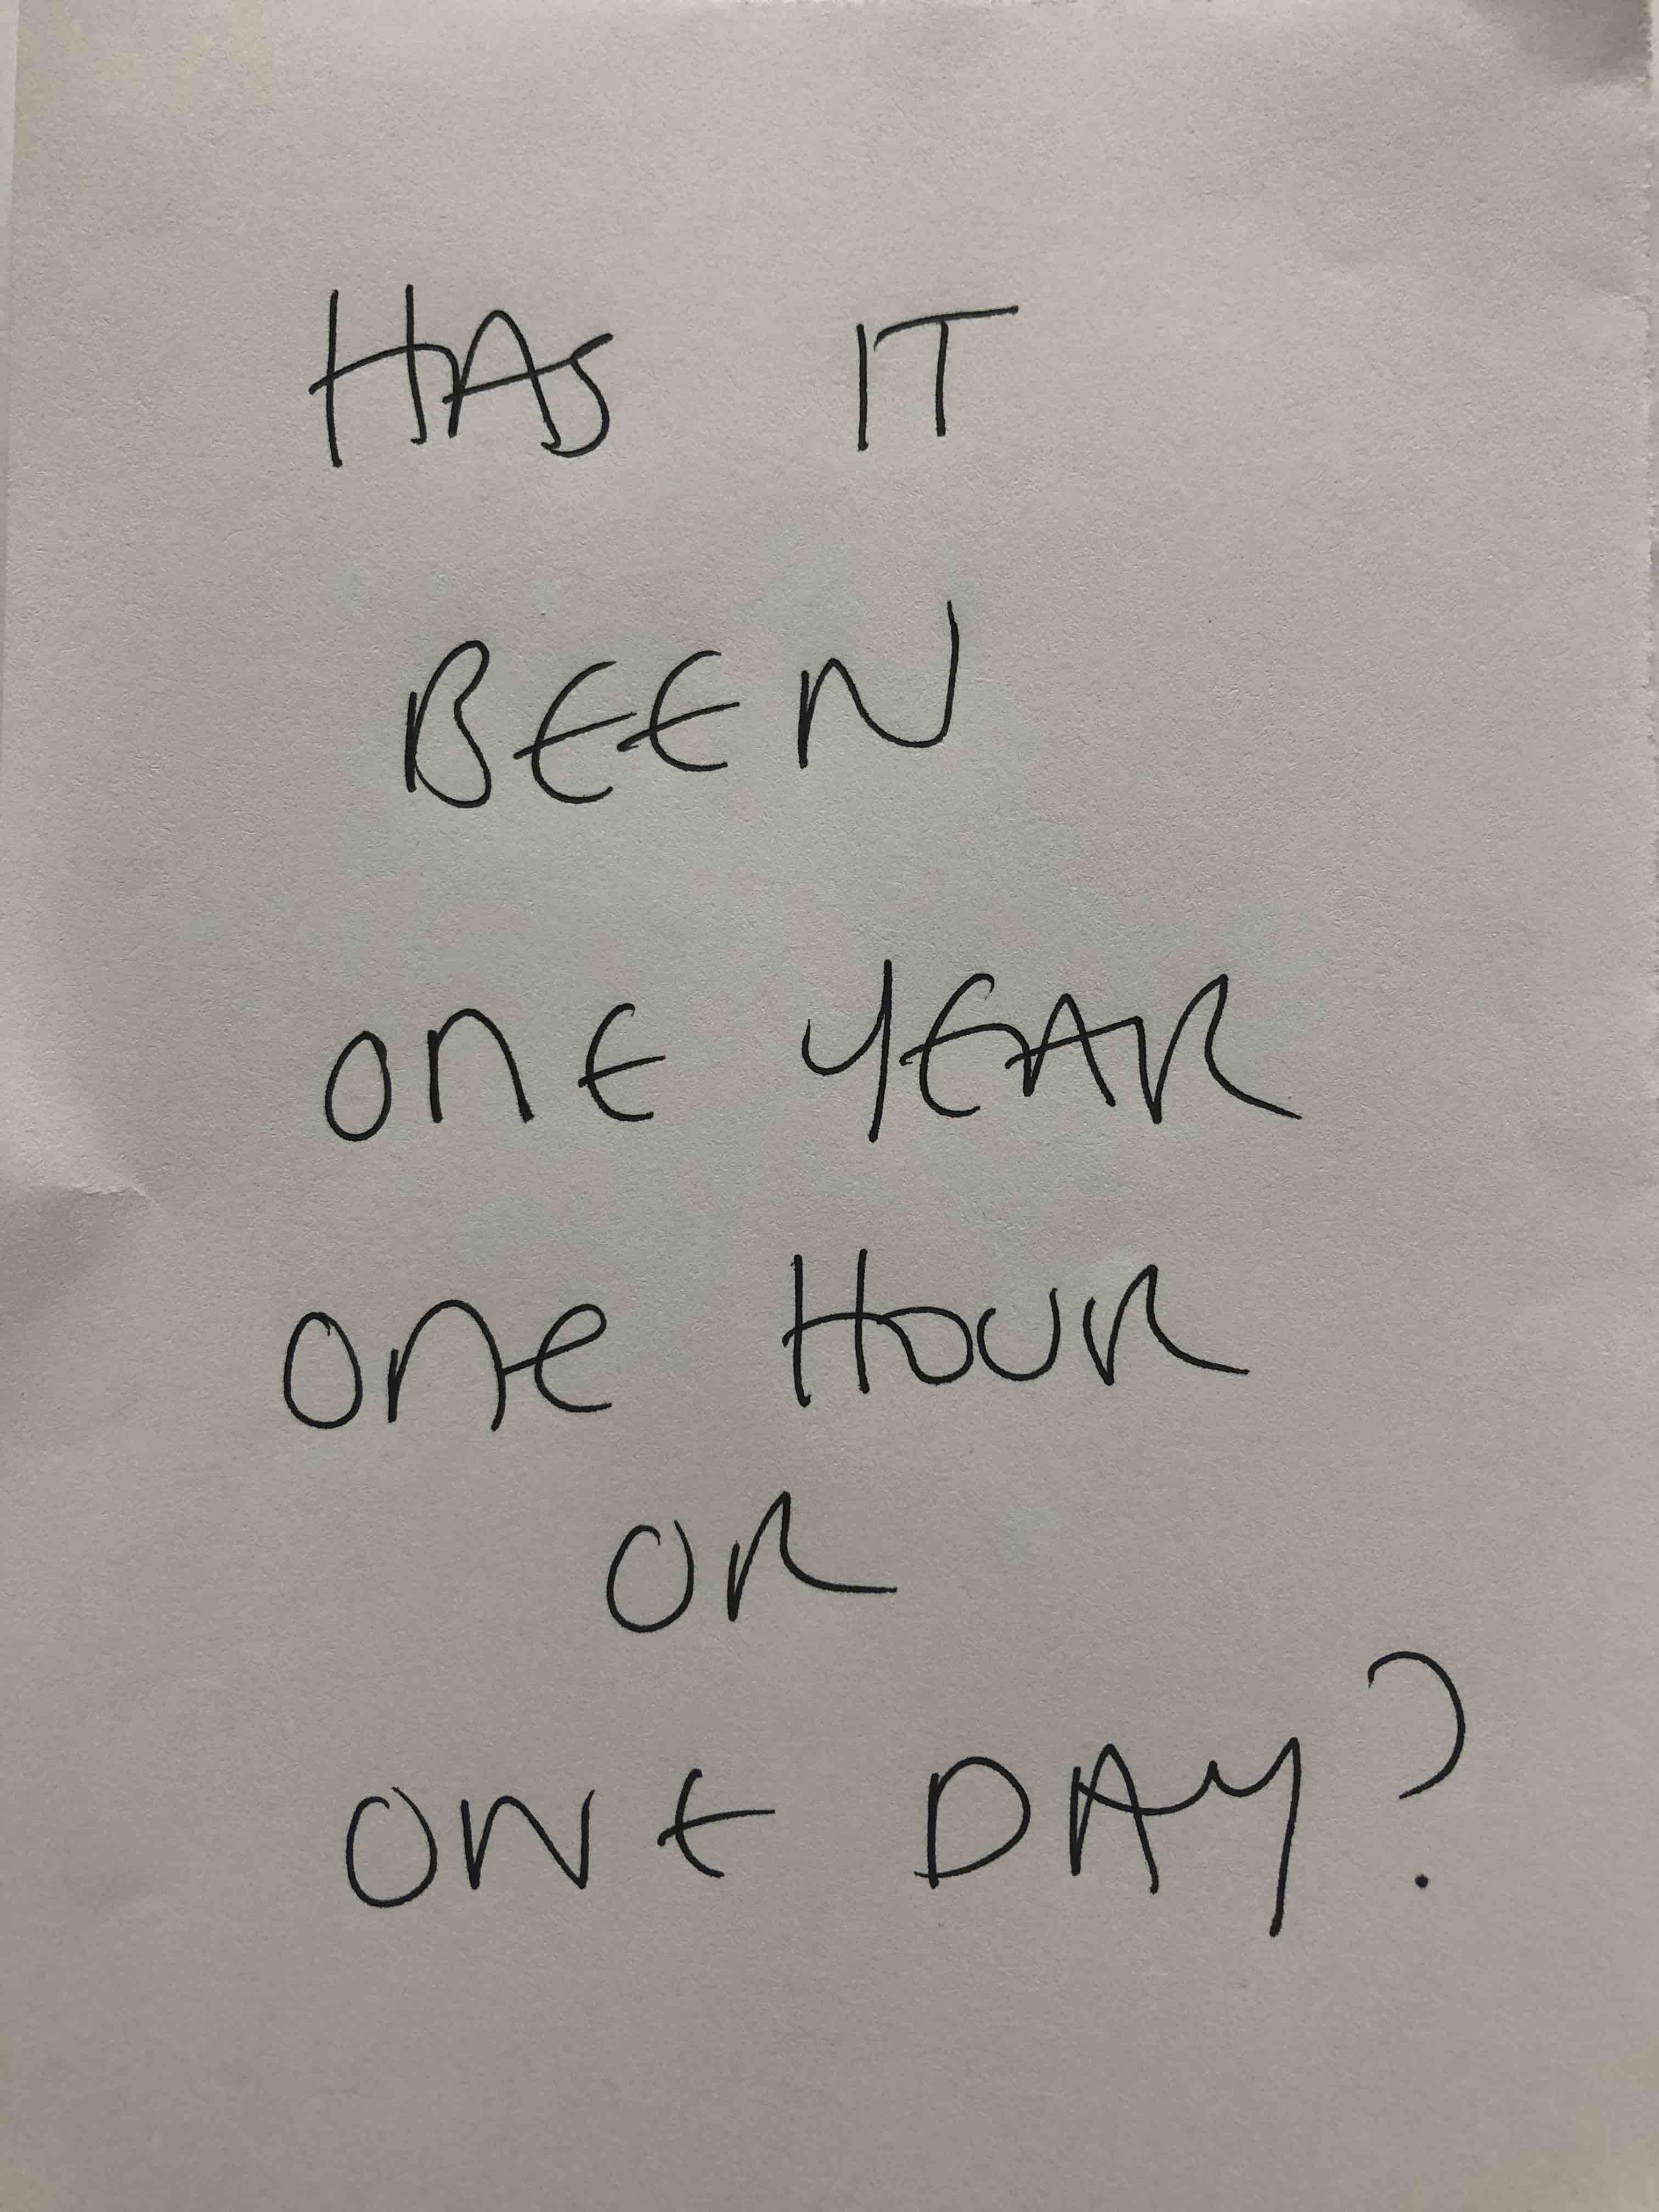 HAS IT
BEEN
ONE YEAR
ONE HOUR
OR
ONE DAY?